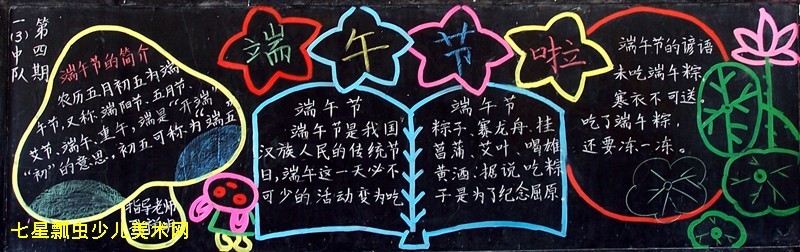 第四期
一(3)中队
端午节啦
端午节的简介
农历五月初五为端
午节,又称端阳节、五月节、
艾节、端午、重午,端是“开端”
“初”的意思,初五可称为“端五
指导老师
端午节
端午节是我国
汉族人民的传统节
日,端午这一天必不
可少的活动变为吃
端午节
粽子、赛龙舟、挂
菖蒲、艾叶、喝雄
黄酒.据说,吃粽
子是为了纪念屈原.
端午节的谚语
未吃端午粽,
寒衣不可送。
吃了端午粽,
还要冻一冻。
七星瓢虫少儿美术网